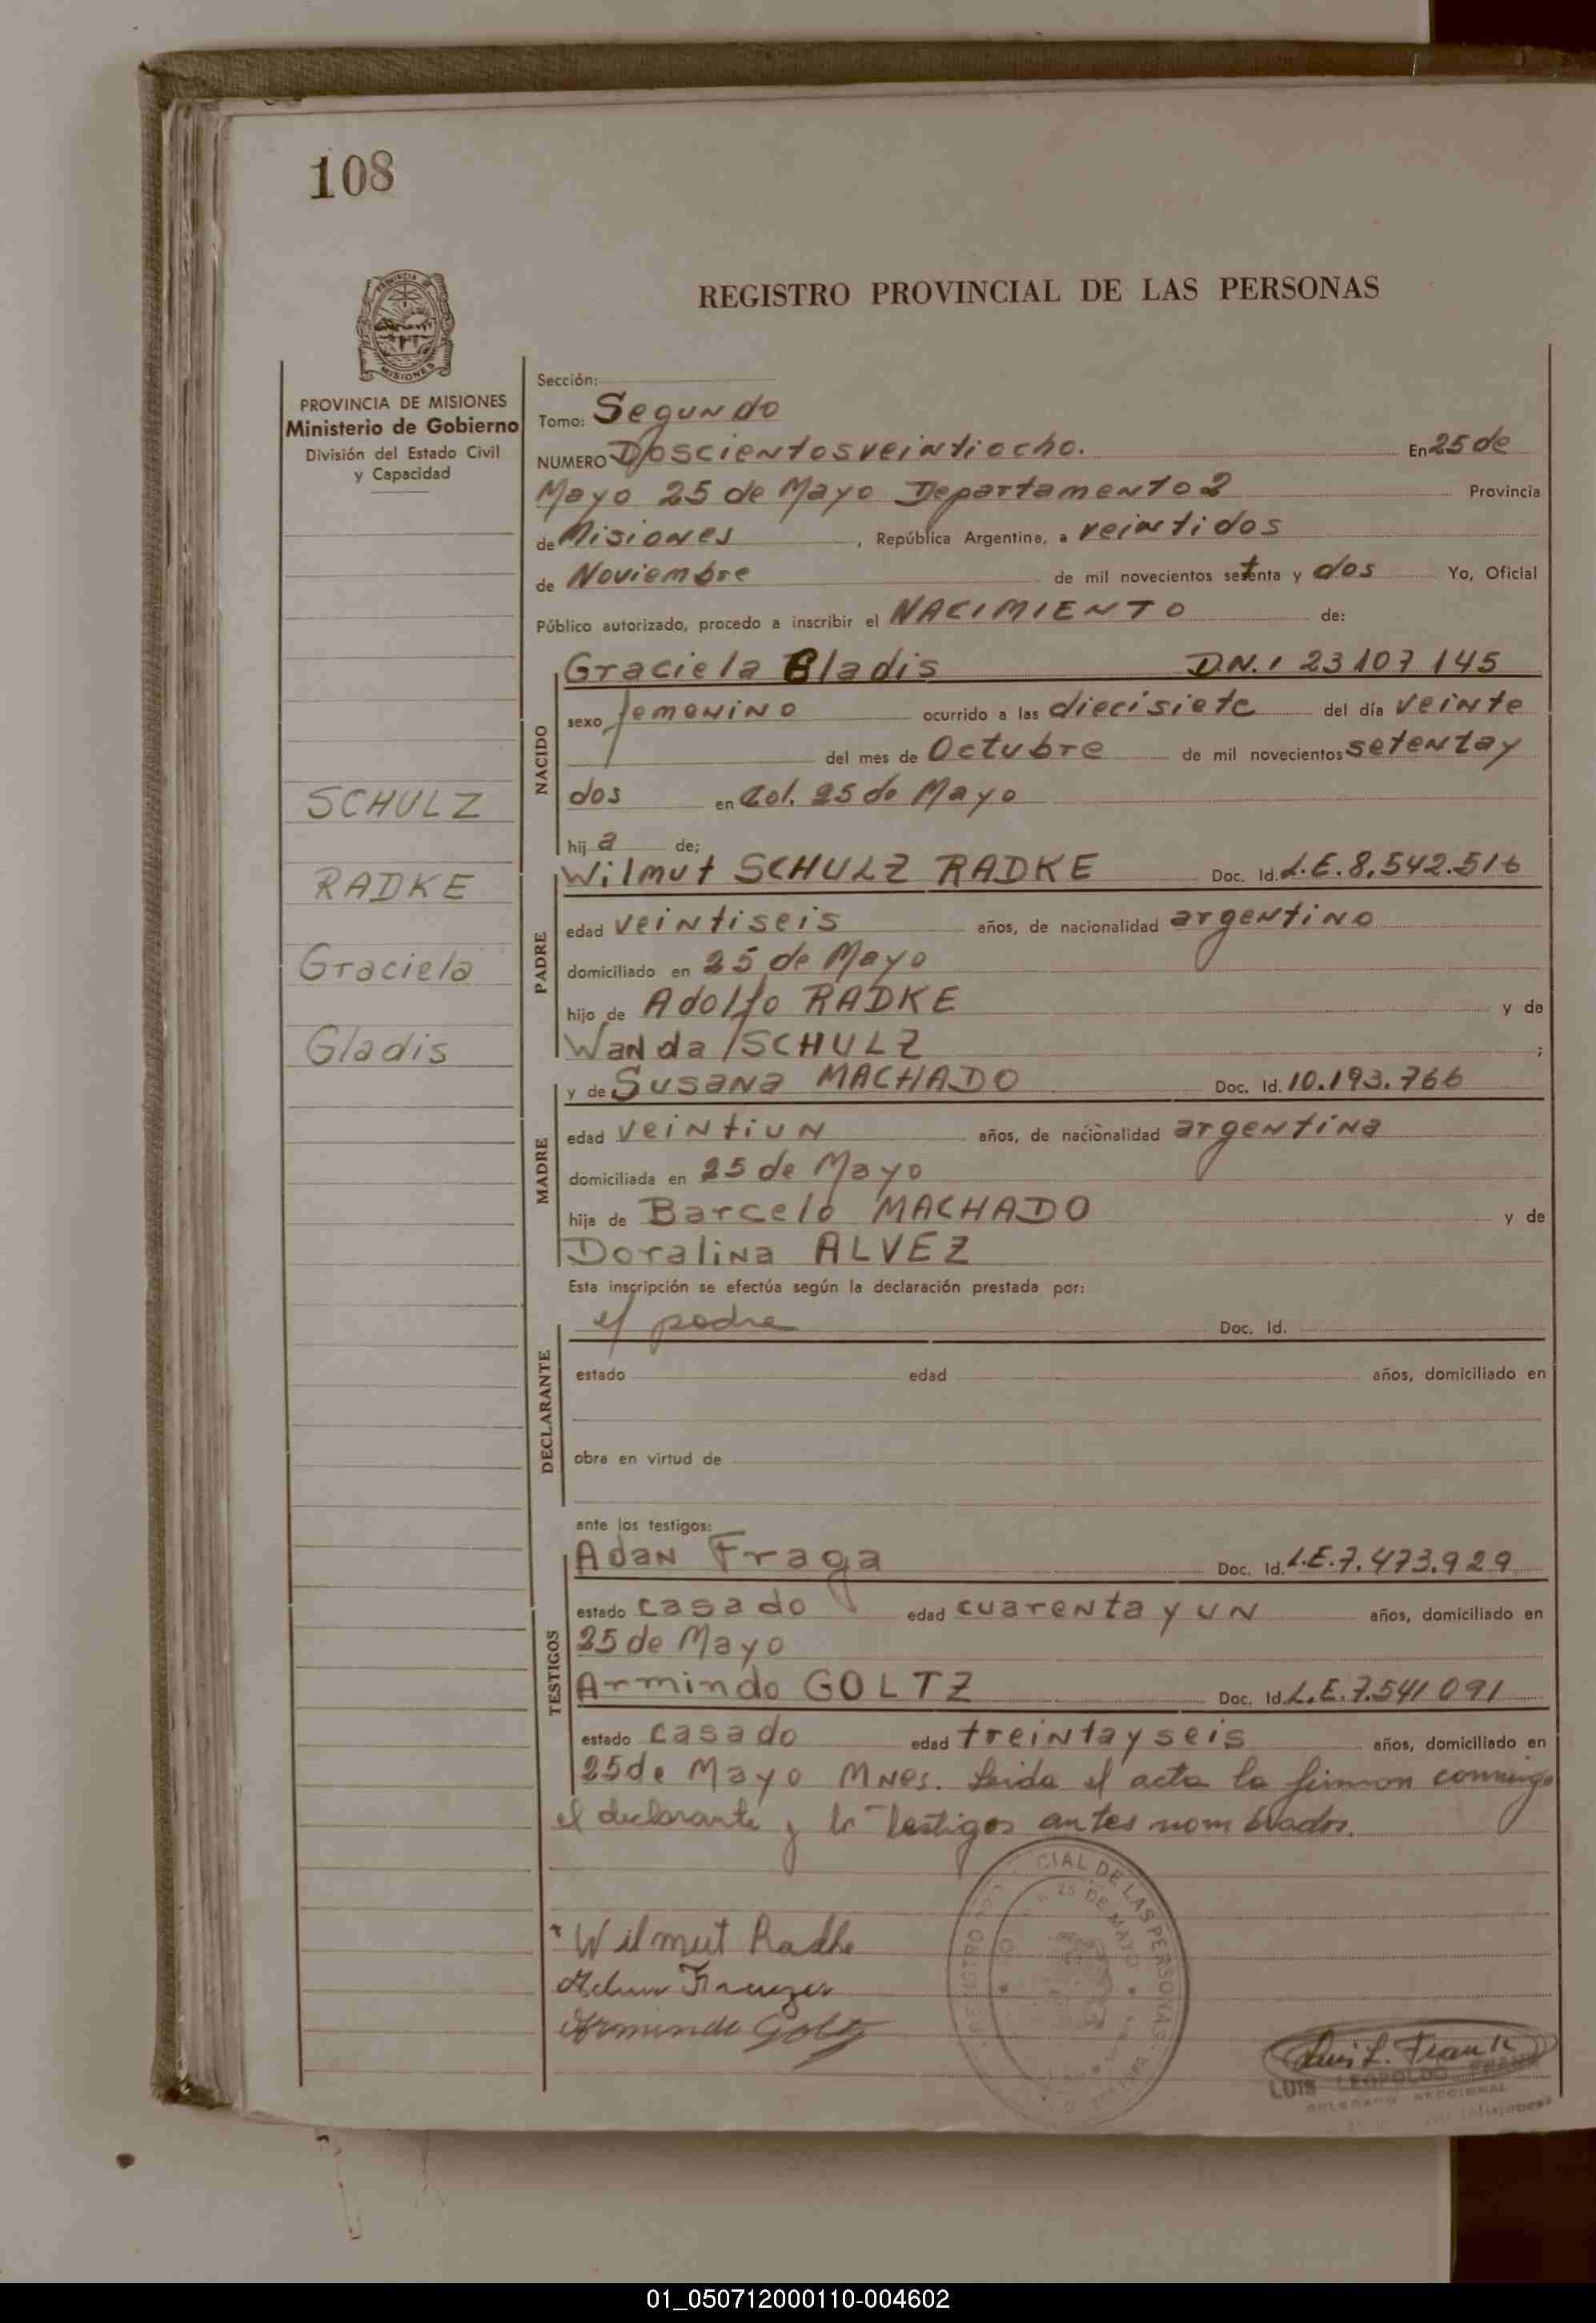 108
REGISTRO PROVINCIAL DE LAS PERSONAS
MISIONES
PROVINCIA DE MISIONES
Ministerio de Gobierno
División del Estado Civil
y Capacidad
SCHULZ
RADKE
Graciela
Gladis
Sección:
Tomo: Segundo
NUMERO Doscientosveintiocho. En 25 de
Mayo 25 de Mayo Departamento 2 Provincia
de Misiones, República Argentina, a veintidos
de Noviembre de mil novecientos setenta y dos Yo, Oficial
Público autorizado, procedo a inscribir el NACIMIENTO de:
NACIDO
Graciela Gladis D.N.I 23107145
sexo femenino ocurrido a las diecisiete del día veinte
del mes de Octubre de mil novecientos setentay
dos en Col. 25 de Mayo
hij a de;
PADRE
Wilmut SCHULZ RADKE Doc. Id. L.E. 8.542.516
edad veintiseis años, de nacionalidad argentino
domiciliado en 25 de Mayo
hijo de Adolfo RADKE y de
Wanda SCHULZ ;
MADRE
y de Susana MACHADO Doc. Id. 10.193.766
edad veintiun años, de nacionalidad argentina
domiciliada en 25 de Mayo
hija de Barcelo MACHADO y de
Doralina ALVEZ
Esta inscripción se efectúa según la declaración prestada por:
DECLARANTE
el padre Doc. Id.
estado edad años, domiciliado en
obra en virtud de
ante los testigos:
TESTIGOS
Adan Fraga Doc. Id. L.E. 7.473.929
estado casado edad cuarenta y un años, domiciliado en
25 de Mayo
Armindo GOLTZ Doc. Id. L.E. 7.541091
estado casado edad treintayseis años, domiciliado en
25 de Mayo Mnes. Leida el acta la firman conmigo
el declarante y los testigos antes nombrados.
Wilmut Radke
Armindo Goltz
CIAL DE LAS PERSONAS
25 DE MAYO
Luis L. Frank
LUIS LEOPOLDO FRANK
DELEGADO SECCIONAL
(Misiones)
01_050712000110-004602